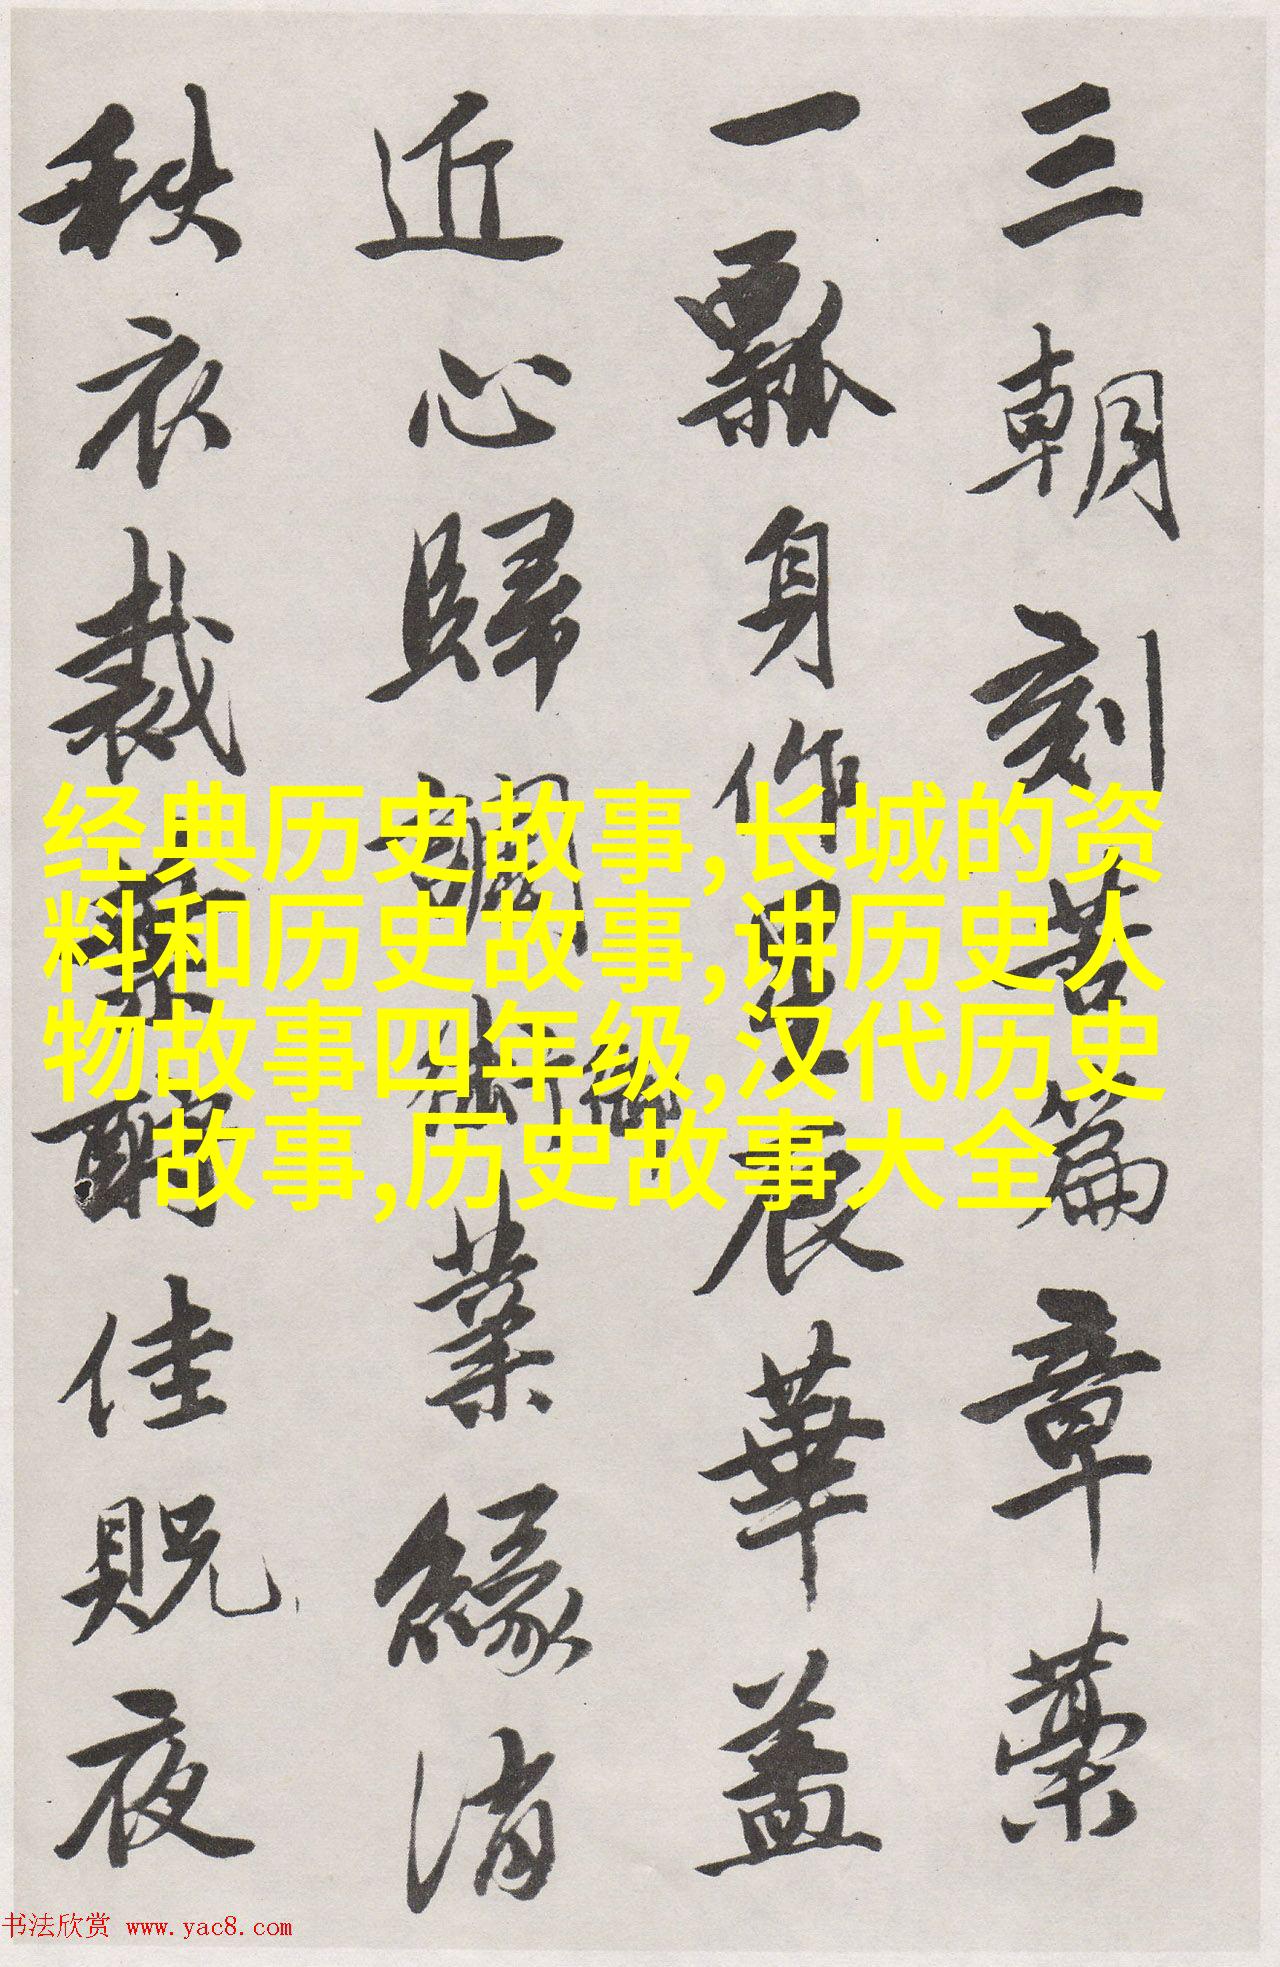 三朝刻苦篇章藁
一瓢身作星辰華蓋
近心歸調御業緣消
秩衣裁酬佳貺夜
经典历史故事,长城的资
料和历史故事,讲历史人
物故事四年级,汉代历史
故事,历史故事大全
书法欣赏 www.yac8.com